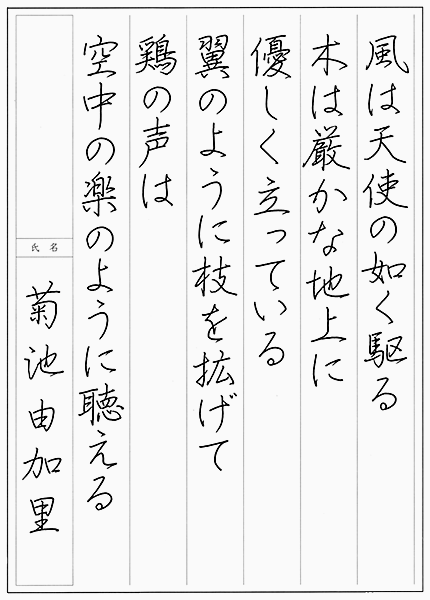 風は天使の如く駆る
木は厳かな地上に
優しく立っている
翼のように枝を拡げて
鶏の声は
空中の楽のように聴える
氏名
菊池由加里